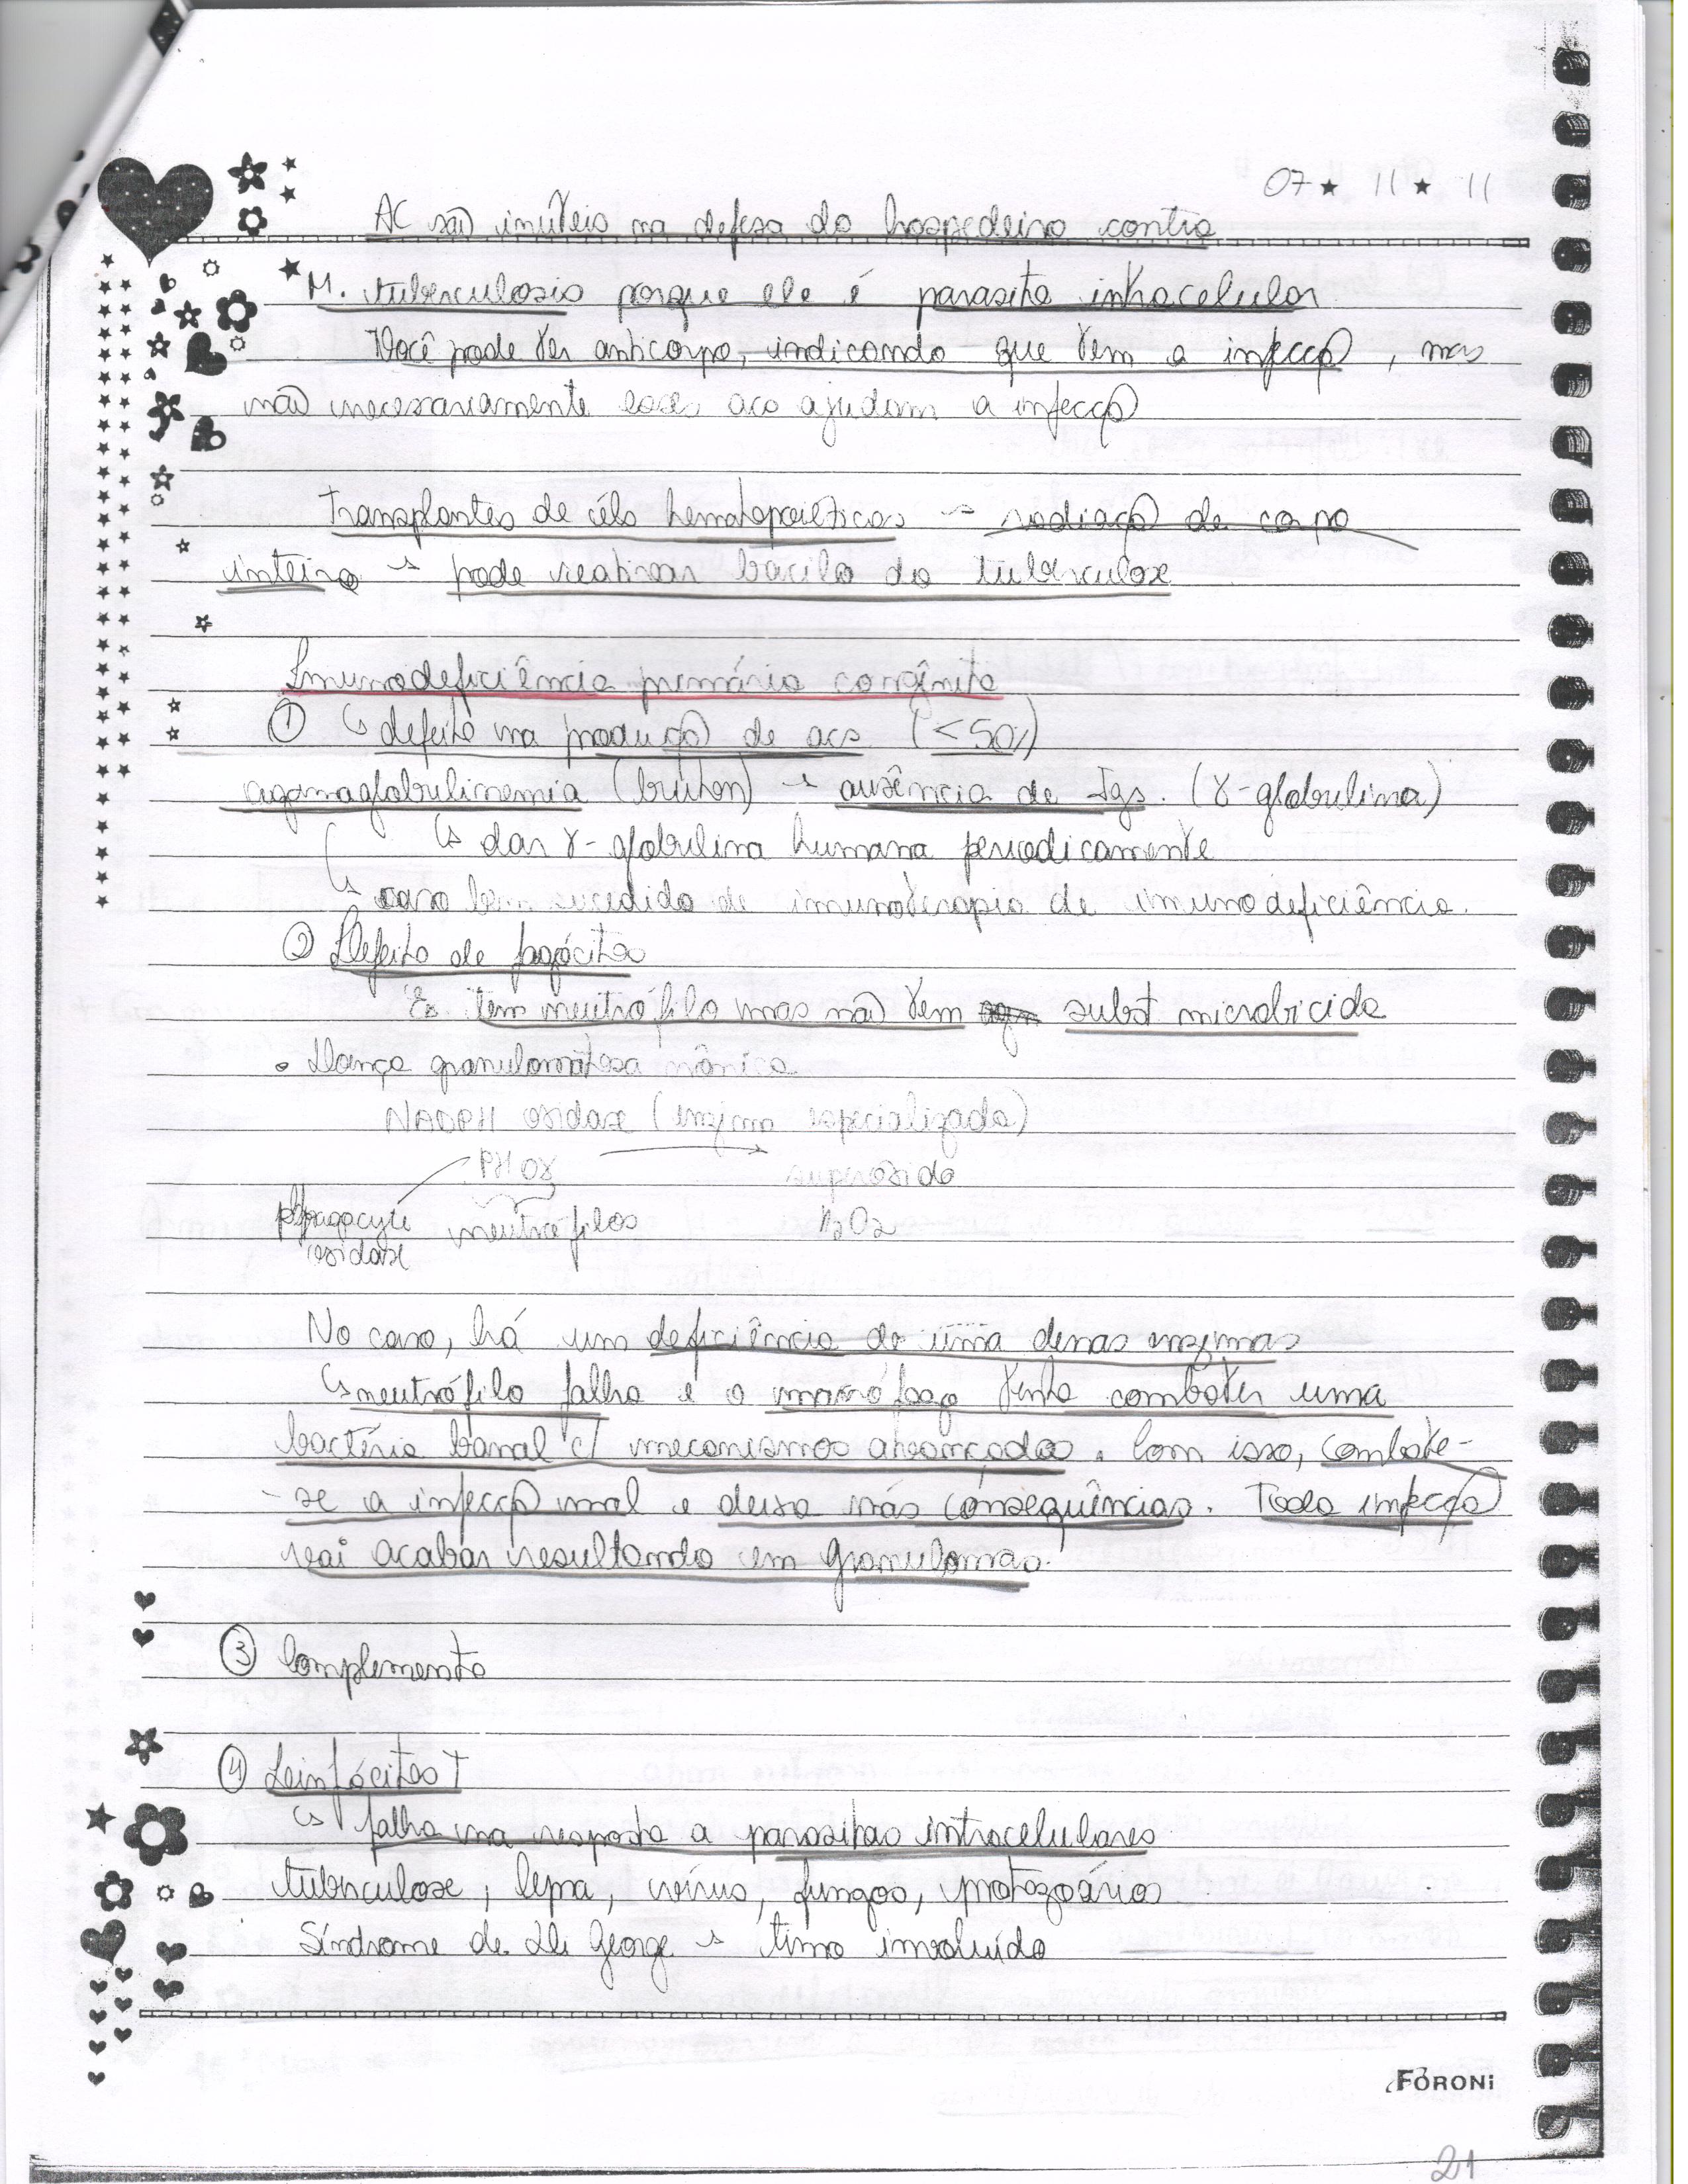 07 ★ 11 ★ 11
AC são inúteis na defesa do hospedeiro contra
M. tuberculosis porque ele é parasita intracelular
Você pode ter anticorpo, indicando que tem a infecção, mas
não necessariamente esses acs ajudam a infecção
Transplantes de céls hematopoiéticas → radiação de corpo
inteiro → pode reativar bacilo da tuberculose
Imunodeficiência primária congênita
① ↳ defeito na produção de acs (<50%)
agamaglobulinemia (bruton) → ausência de Igs. (γ-globulina)
↳ dar γ-globulina humana periodicamente
↳ caso bem sucedido de imunoterapia de imunodeficiência.
② Defeito de fagócitos
Ex. tem neutrófilo mas não tem subst microbicida
• Doença granulomatosa crônica
NADPH oxidase (enzima especializada)
PHOX → superóxido
phagocyte neutrófilos H2O2
oxidase
No caso, há um deficiência de uma dessas enzimas
↳ neutrófilo falha e o macrófago tenta combater uma
bactéria banal c/ mecanismos avançados. Com isso, combate-
-se a infecção mal e deixa más consequências. Toda infecção
vai acabar resultando em granulomas.
③ Complemento
④ Linfócitos T
↳ falha na resposta a parasitas intracelulares
tuberculose, lepra, vírus, fungos, protozoários
Síndrome de Di George → timo involuído
FORONI
21